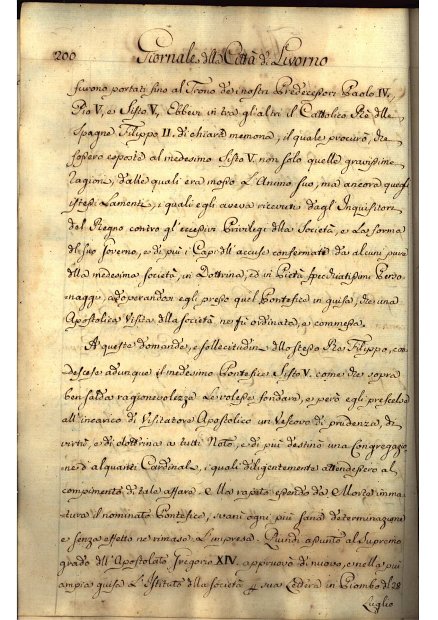 200 Giornale della Città di Livorno
furono portati fino al Trono de' nostri Predecessori Paolo IV,
Pio V, e Sisto V. Ebbevi in tra gli altri il Cattolico Re delle
Spagne Filippo II. di chiara memoria, il quale procurò, che
fossero esposte al medesimo Sisto V. non solo quelle gravissime
ragioni, dalle quali era mosso l'Animo suo, ma ancora quegli
istessi Lamenti, i quali egli aveva ricevuti dagl'Inquisitori
del Regno contro gl'eccessivi Privilegi della Società, e La forma
del suo Governo, e di più i Capi dell'accuse confermati da alcuni pure
della medesima Società, in Dottrina, ed in Pietà specchiatissimi Perso-
naggi, adoperandosi egli presso quel Pontefice in guisa, che una
Apostolica Visita della Società ne fù ordinata, e commessa.
A queste domande, e sollecitudini dello stesso Re Filippo, con-
descese adunque il medesimo Pontefice Sisto V. come che sopra
ben salda ragionevolezza Le volesse fondare, e però egli prescelse
all'incarico di Visitatore Apostolico un Vescovo di prudenza, di
virtù, e di dottrina a tutti Noto, e di più destinò una Congregazio-
ne di alquanti Cardinali, i quali diligentemente attendessero al
compimento di tale affare. Ma rapito essendo da Morte imma-
tura il nominato Pontefice, svanì ogni più sana determinazione
e senza effetto ne rimase L'impresa. Quindi assunto al Supremo
grado dell'Apostolato Gregorio XIV. approvò di nuovo, e nella più
ampia guisa L'Istituto della Società sua Lettera in Piombo del 28
Luglio